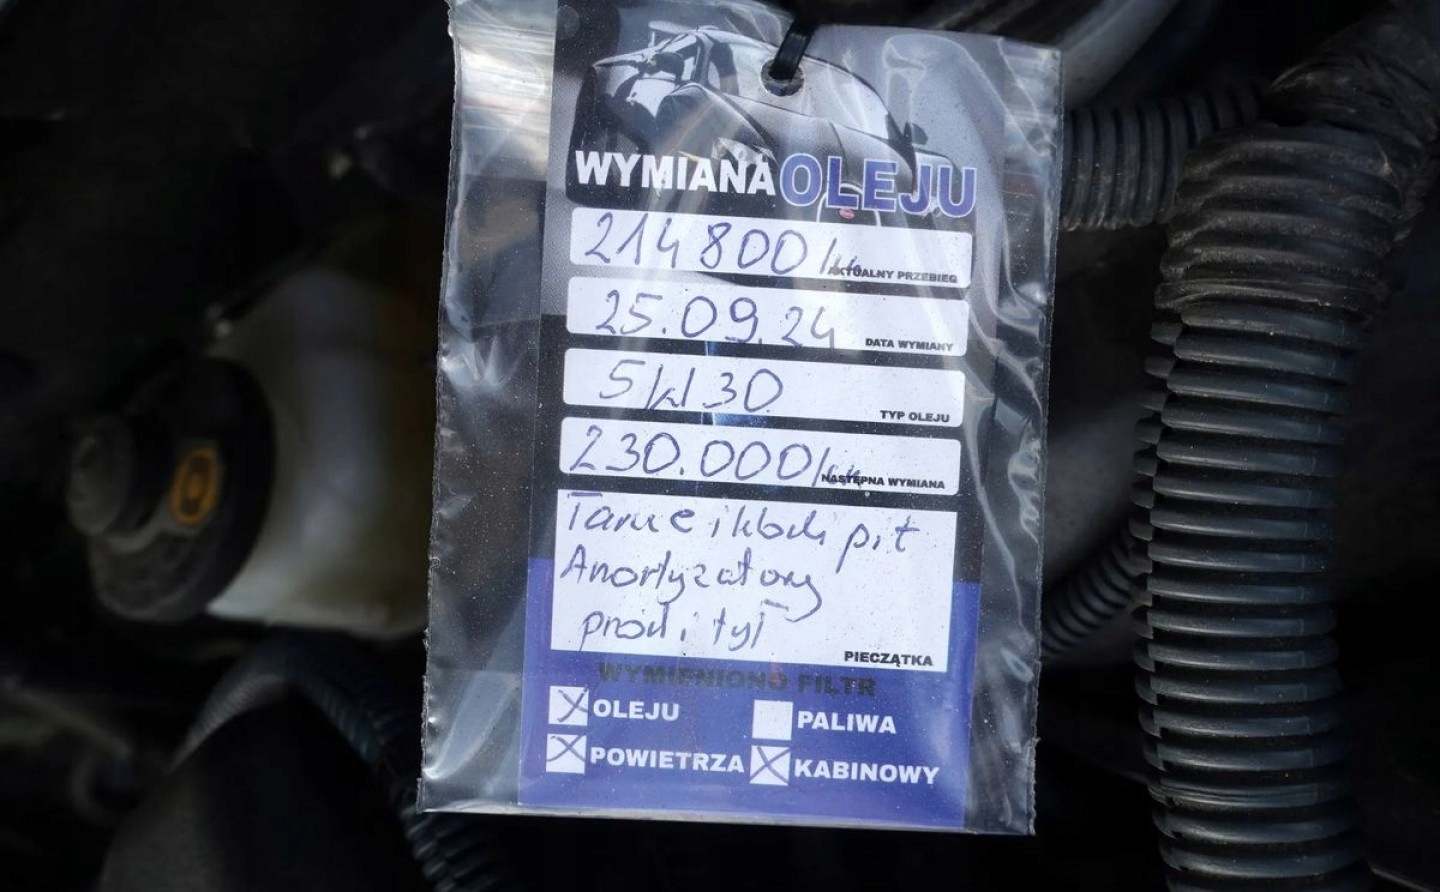 WYMIANA OLEJU
214 800 km
AKTUALNY PRZEBIEG
25.09.24
DATA WYMIANY
5W30
TYP OLEJU
230.000 km
NASTĘPNA WYMIANA
Tarcze i klocki p.t
Amortyzatory
przód i tył
PIECZĄTKA
WYMIENIONO FILTR
OLEJU
PALIWA
POWIETRZA
KABINOWY